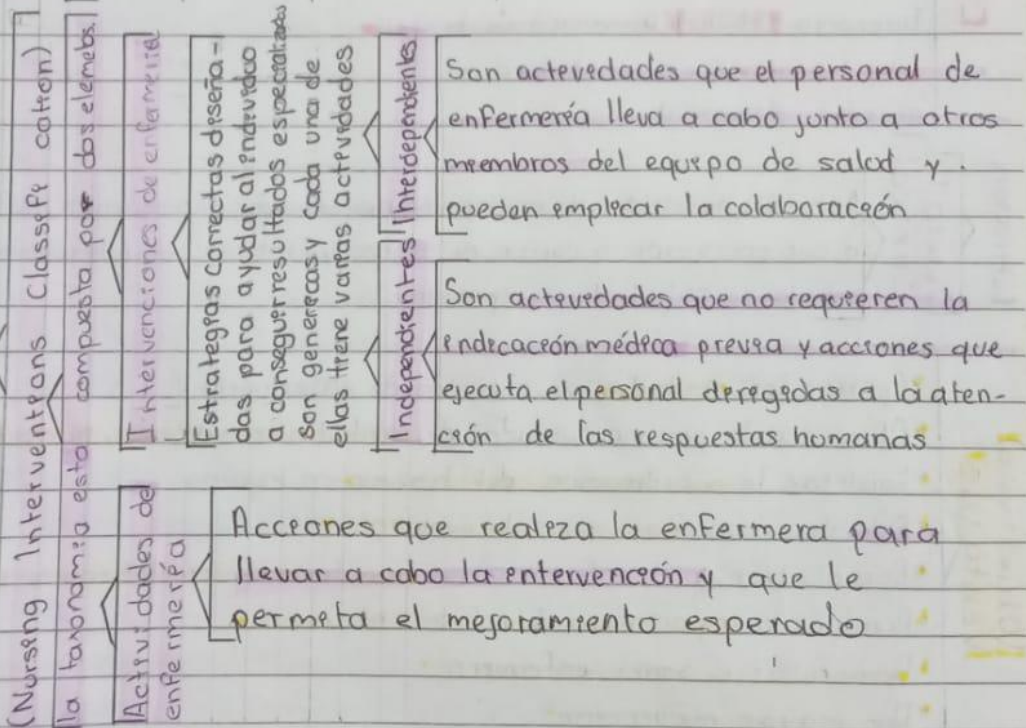 (Nursing Interventions Classification)
la taxonomia esta compuesta por dos elemetos.
Intervenciones de enfermeria
Estrategias correctas diseña-
das para ayudar al individuo
a conseguir resultados especializados
son genericas y cada una de
ellas tiene varias actividades
Interdependientes
Son actividades que el personal de
enfermería lleva a cabo junto a otros
miembros del equipo de salud y.
pueden implicar la colaboración
Independientes
Son actividades que no requieren la
indicación médica previa y acciones que
ejecuta el personal dirigidas a la aten-
ción de las respuestas humanas
Actividades de
enfermería
Acciones que realiza la enfermera para
llevar a cabo la intervención y que le
permita el mejoramiento esperado